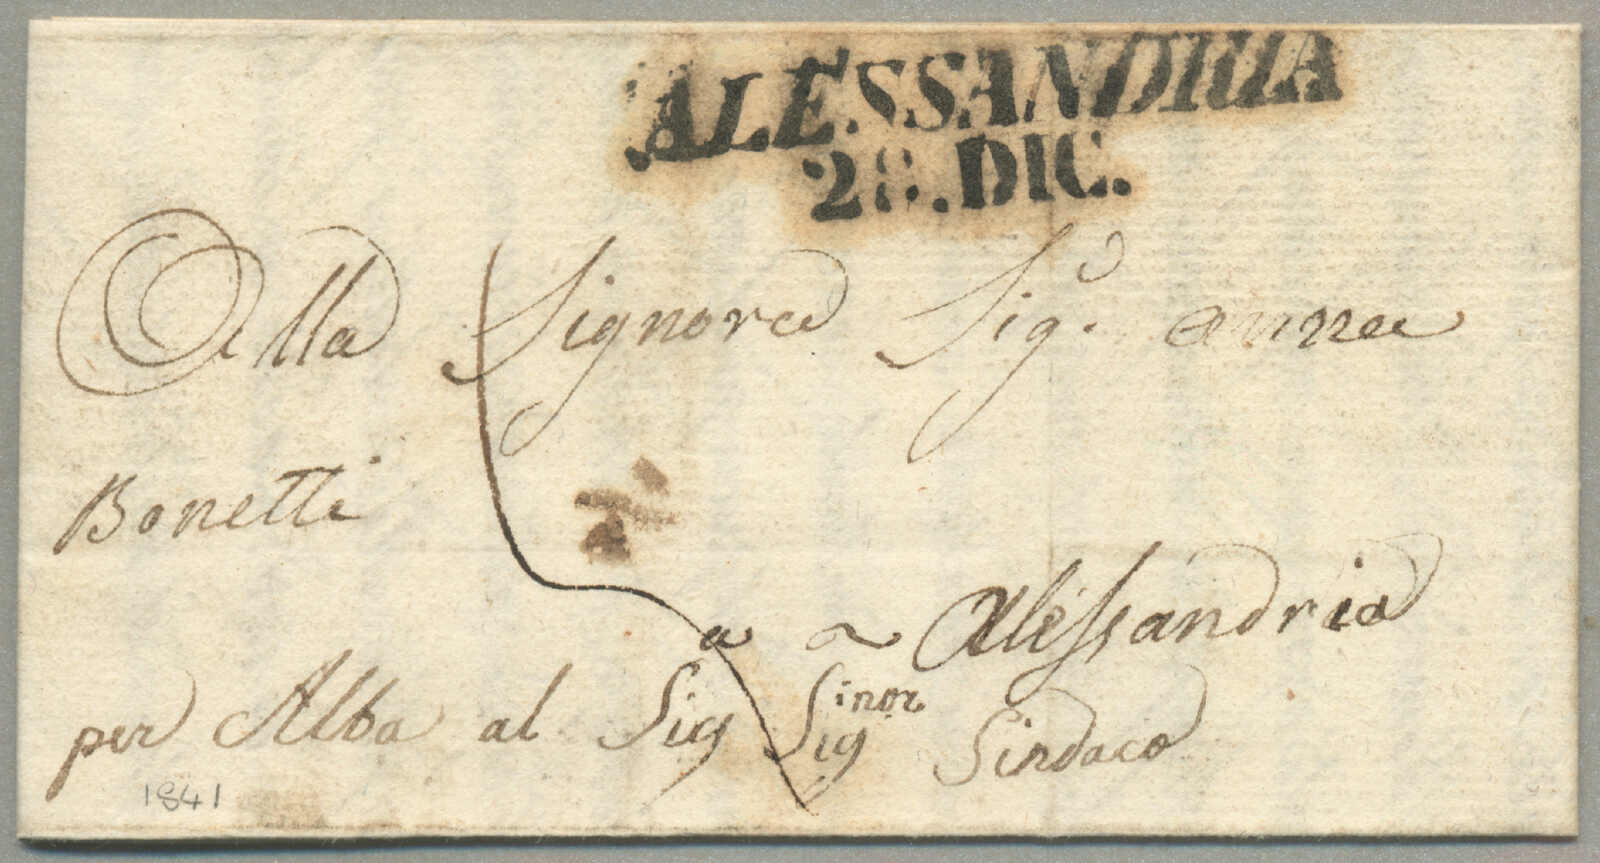 ALESSANDRIA
28.DIC.
Alla Signora Sig.a anna
Bonetti
a a Alessandria
per Alba al Sig Sig.inor Sindaco
1841